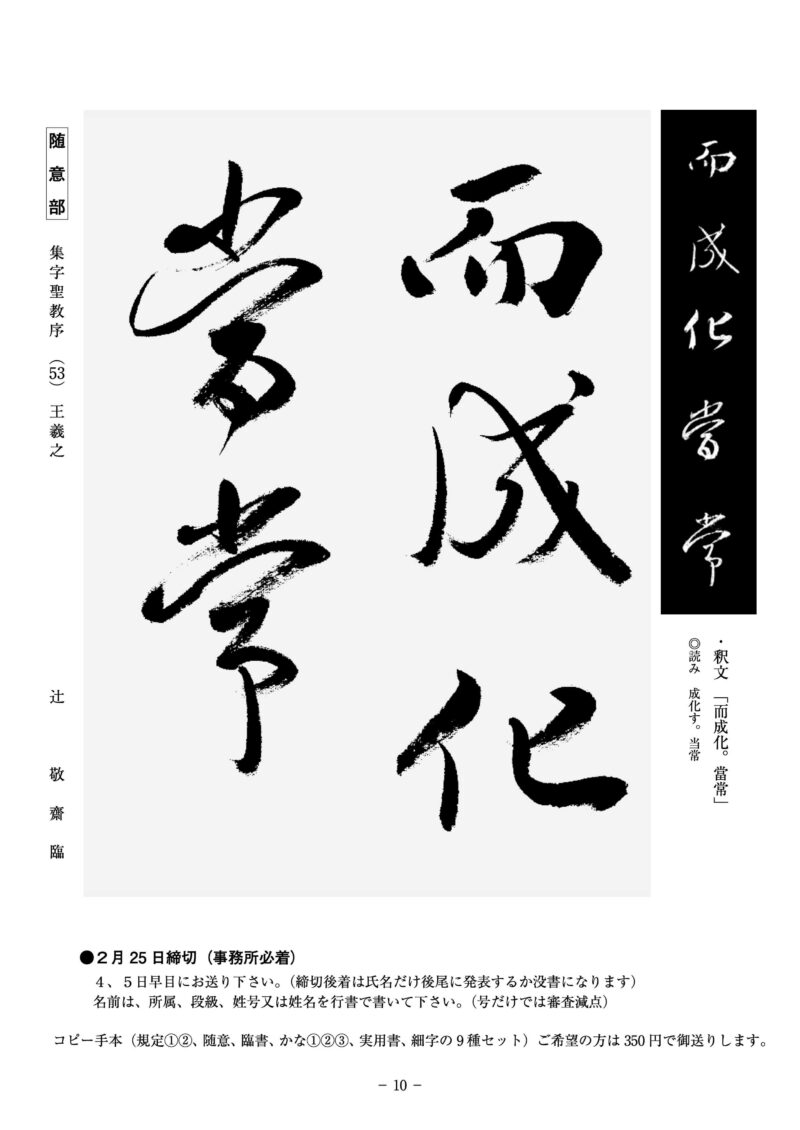 而成化當常
・釈文 「而成化。當常」
◎読み 成化す。当常
而成化
當常
随意部 集字聖教序 (53) 王羲之 辻 敬齋臨
●2月25日締切（事務所必着）
4、5日早目にお送り下さい。（締切後着は氏名だけ後尾に発表するか没書になります）
名前は、所属、段級、姓号又は姓名を行書で書いて下さい。（号だけでは審査減点）
コピー手本（規定①②、随意、臨書、かな①②③、実用書、細字の9種セット）ご希望の方は350円で御送りします。
− 10 −